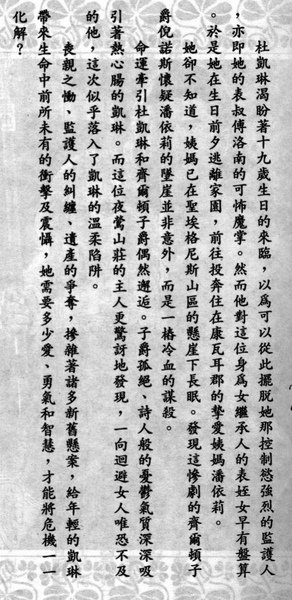 杜凱琳渴盼著十九歲生日的來臨，以為可以從此擺脫她那控制慾強烈的監護人
，亦即她的表叔傅洛南的可怖魔掌。然而他對這位身為女繼承人的表姪女早有盤算
。於是她在生日前夕逃離家園，前往投奔住在康瓦耳郡的摯愛姨媽潘依莉。
她卻不知道，姨媽已在聖埃格尼斯山區的懸崖下長眠。發現這慘劇的齊爾頓子
爵倪諾斯懷疑潘依莉的墜崖並非意外，而是一樁冷血的謀殺。
命運牽引杜凱琳和齊爾頓子爵偶然邂逅。子爵孤絕、詩人般的憂鬱氣質深深吸
引著熱心腸的凱琳。而這位夜鶯山莊的主人更驚訝地發現，一向迴避女人唯恐不及
的他，這次似乎落入了凱琳的溫柔陷阱。
喪親之慟、監護人的糾纏、遺產的爭奪，摻雜著諸多新舊懸案，給年輕的凱琳
帶來生命中前所未有的衝擊及震懾，她需要多少愛、勇氣和智慧，才能將危機一一
化解？